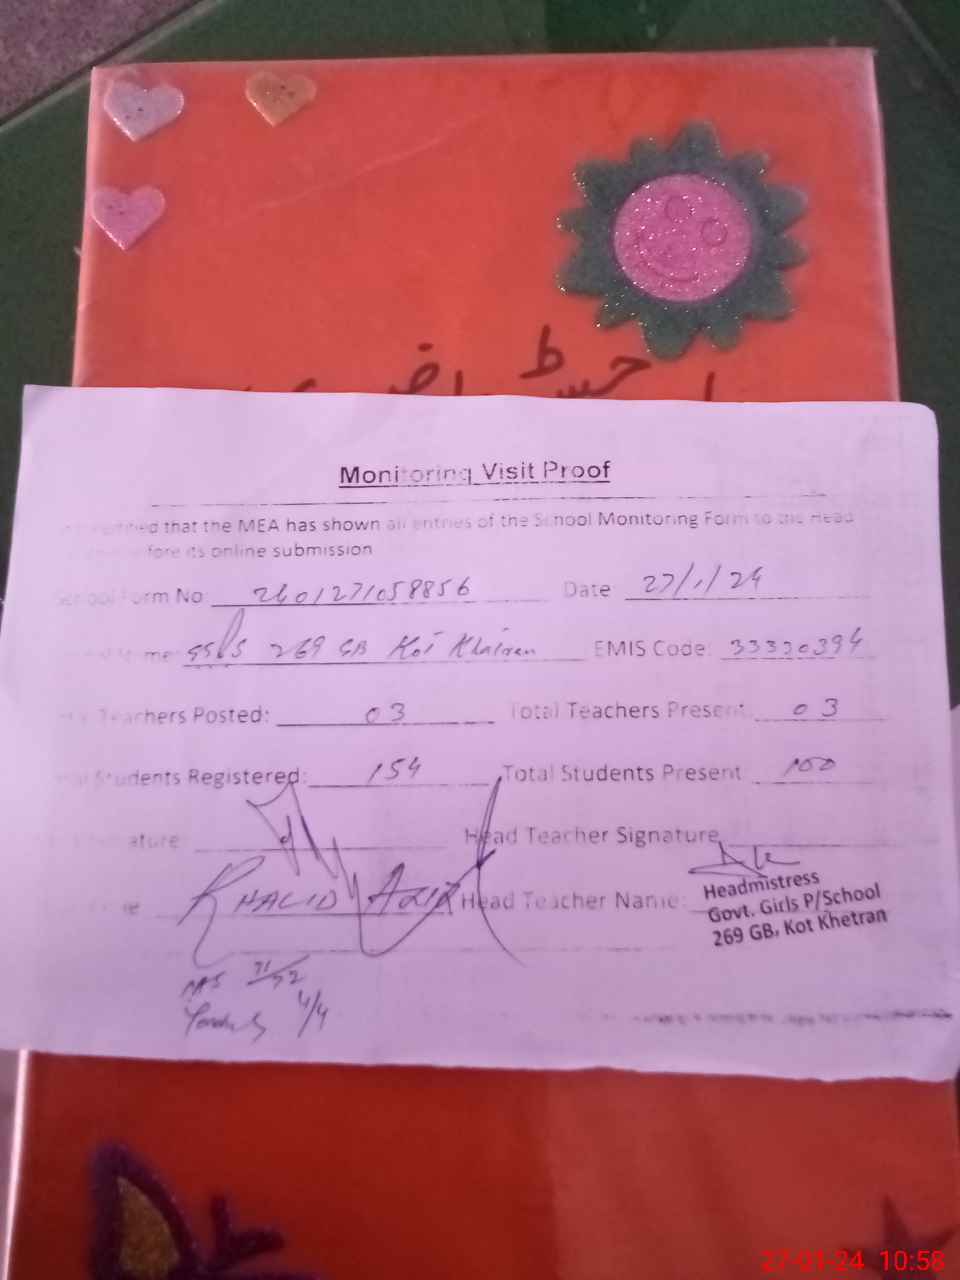 حسٹر
Monitoring Visit Proof
certified that the MEA has shown all entries of the School Monitoring Form to the Head
before its online submission
School Form No: 2601271058856 Date 27/1/24
Name 269 GB Kot EMIS Code: 33320394
Teachers Posted: 03 Total Teachers Present: 03
Students Registered: 154 Total Students Present 100
Head Teacher Signature
KHALID Head Teacher Name:
Headmistress
Govt. Girls P/School
269 GB, Kot Khetran
4/4
27-01-24 10:58